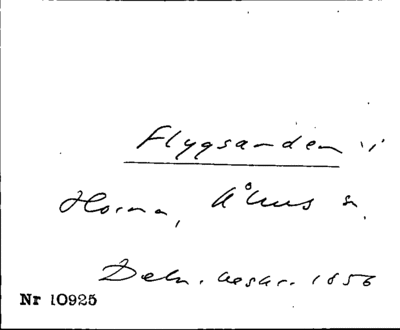 Flygsanden i
Horna, Åhus sn.
Deln. beskr. 1856
Nr 10925